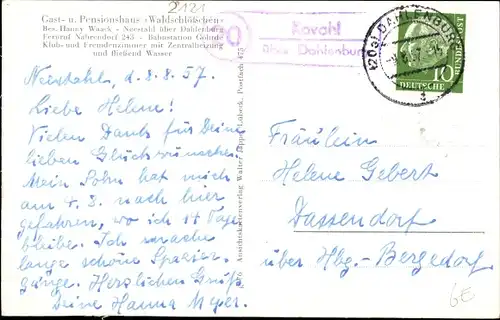 2121
Gast- u. Pensionshaus »Waldschlößchen«
Bes. Hanny Waack - Neestahl über Dahlenburg
Fernruf Nahrendorf 243 - Bahnstation Göhrde
Klub- und Fremdenzimmer mit Zentralheizung
und fließend Wasser
Neestahl, d. 8.8.57.
Liebe Helene!
Vielen Dank für Deine
lieben Glückwünsche.
Mein Sohn hat mich
am 4.8. nach hier
gefahren, wo ich 14 Tage
bleibe. Ich mache
lange schöne Spazier-
gänge. Herzlichen Gruß
Deine Hanna Meyer.
Ansichtskartenverlag Walter Lübeck, Postfach 475
Kovahl
über Dahlenburg
(20a) DAHLENBURG
a
10
DEUTSCHE
BUNDESPOST
Fräulein
Helene Gebert
Dassendorf
über Hbg.-Bergedorf
GE